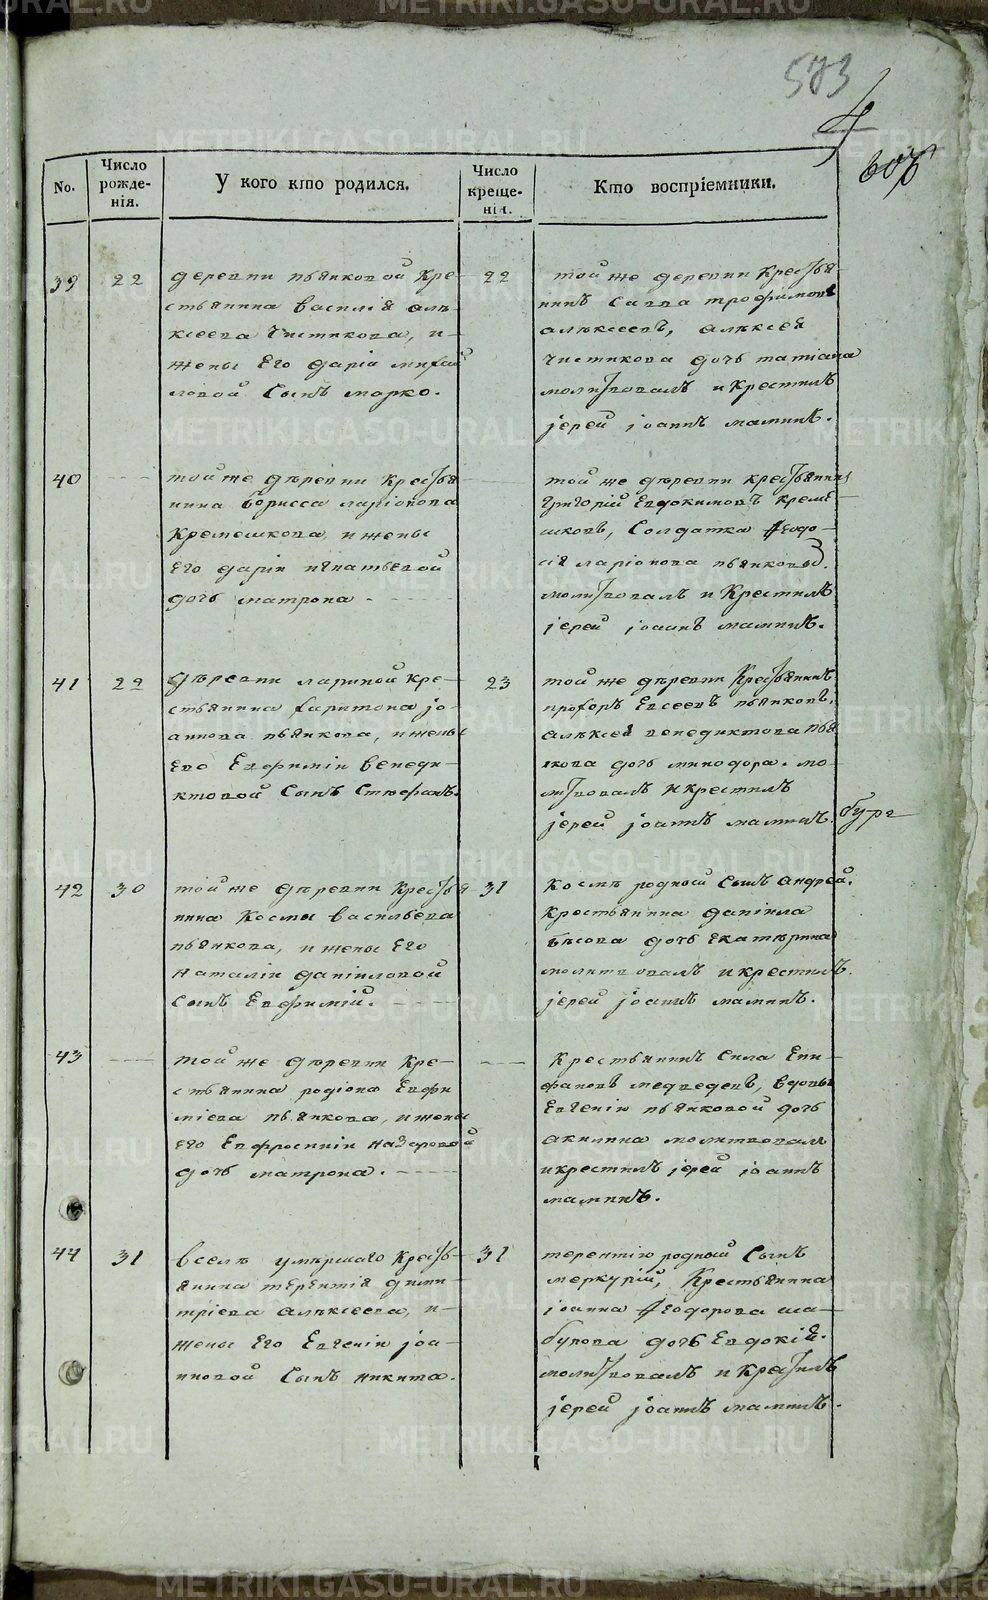 573
607
No.
Число рожде-нія.
У кого кто родился.
Число креще-нія.
Кто воспріемники.
39
22
деревни пьянковой кре-
стьянина василія але-
ксеева Чистикова, и
жены Его дарiи михай
ловой Сынъ марко.
22
той же деревни Крестья
нинъ Савва трофимовъ
алѣксеевъ, алѣксея
чистикова дочь татiана
молитвовалъ и Крестилъ
іерей іоаннъ маминъ.
40
той же дѣревни Крестья
нина бориса ларіонова
Кремешкова, и жены
Его дарiи игнатьевой
дочь матрона
той же дѣревни крестьянинъ
григорій Евдокимовъ кремѣ
шковъ, Солдатка Феодо-
сія ларіонова пьянковы.
молитвовалъ и Крестилъ
іерей іоаннъ маминъ.
41
22
дѣревни лариной кре-
стьянина харитона іо-
аннова пьянкова, и жены
Его Евфиміи венеди-
ктовой Сынъ Стѣфанъ.
23
той же дѣревни Крестьянинъ
прохоръ Евсеевъ пьянковъ,
алѣксея венедиктова пья
нкова дочь минодора. мо-
литвовалъ и крестилъ
іерей іоаннъ маминъ.
42
30
той же дѣревни Крестья
нина Космы васильева
пьянкова, и жены Его
наталіи даніиловой
Сынъ Евфимій.
31
Космѣ родный Сынъ андрей.
Крестьянина даніила
бѣсова дочь Екатѣрина
молитвовалъ и крестилъ
іерей іоаннъ маминъ.
43
той же дѣревни Кре-
стьянина родіона Евфи
міева пьянкова, и жены
Его Евфросиніи назаровой
дочь матрона.
Крестьянинъ Сила Епи-
фановъ медведевъ, вдовы
Евгеніи пьянковой дочь
акилина молитвовалъ
и крестилъ іерей іоаннъ
маминъ.
44
31
в селѣ умѣршаго Кресть-
янина терентія дими-
тріева алѣксеева, и
жены Его Евгеніи іоа-
нновой Сынъ никита.
31
терентію родный Сынъ
меркурій, Крестьянина
іоанна Феодорова ша-
бунова дочь Евдокія.
молитвовалъ и Крестилъ
іерей іоаннъ маминъ.
METRIKI.GASO-URAL.RU